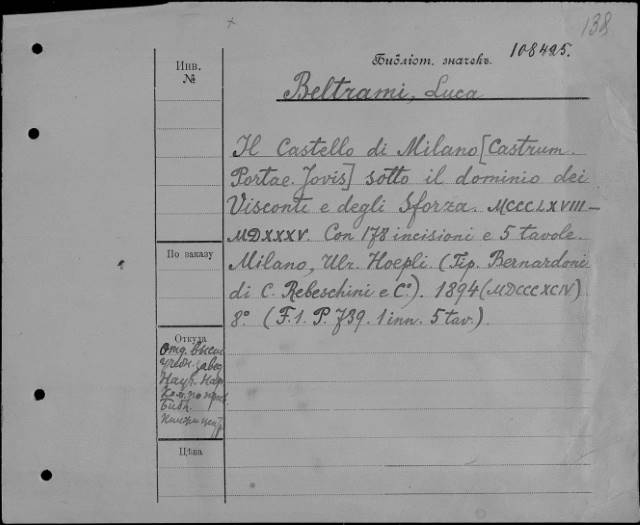 138
Библіот. значекъ. 108425.
Инв.
№
Beltrami, Luca
Il Castello di Milano [Castrum
Portae Jovis] sotto il dominio dei
Visconti e degli Sforza. MCCCLXVIII-
MDXXXV. Con 178 incisioni e 5 tavole.
Milano, Ulr. Hoepli. (Tip. Bernardoni
di C. Rebeschini e C°). 1894 (MDCCCXCIV).
8° (F. 1. P. 739. 1 inn. 5 tav.).
По заказу
Откуда
Отд. высш
учебн. завед
Науч. Нар
Ком. по
Библ.
Цѣна